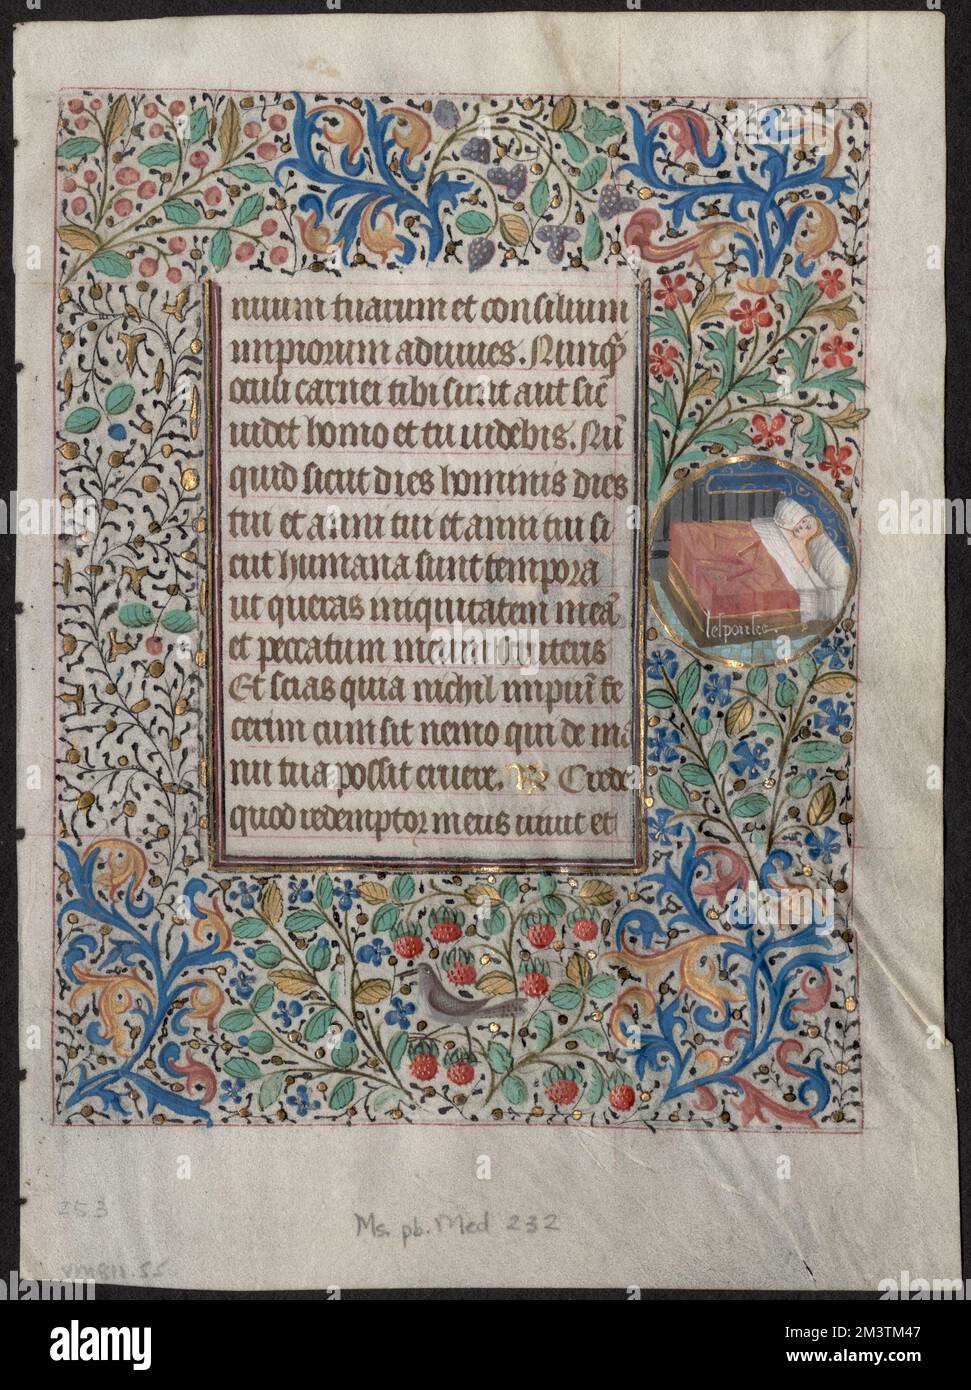 nuum tuarum et consilium
impiorum adiuues. Nunq̃
oculi carnei tibi sunt aut sic̃
uidet homo et tu uidebis. Nũ
quid sicut dies hominis dies
tui et anni tui et anni tui si
cut humana sunt tempora
ut queras iniquitatem meã
et peccatum meum scruteris
Et scias quia nichil impiũ fe
cerim cum sit nemo qui de ma
nu tua possit eruere. R̃ Crede
quod redemptor meus uiuit et
lespouse
253
Ms. pb. Med 232
alamy
Image ID: 2M3TM47
www.alamy.com